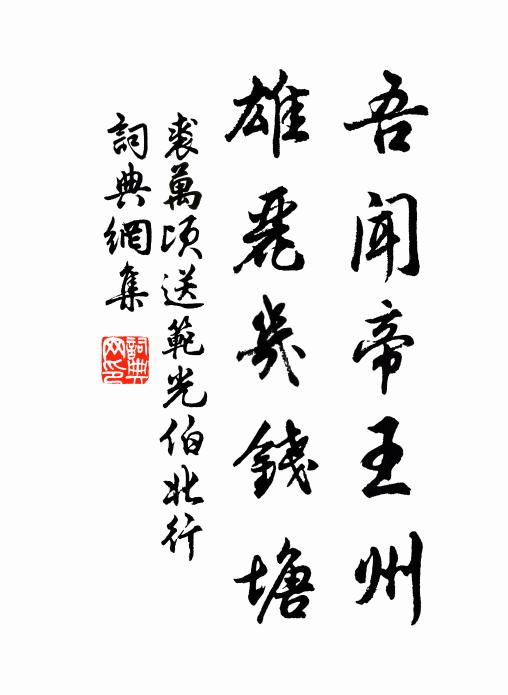 吾聞帝王州
雄麗幾錢塘
裘萬頃送範光伯北行
詞典網集